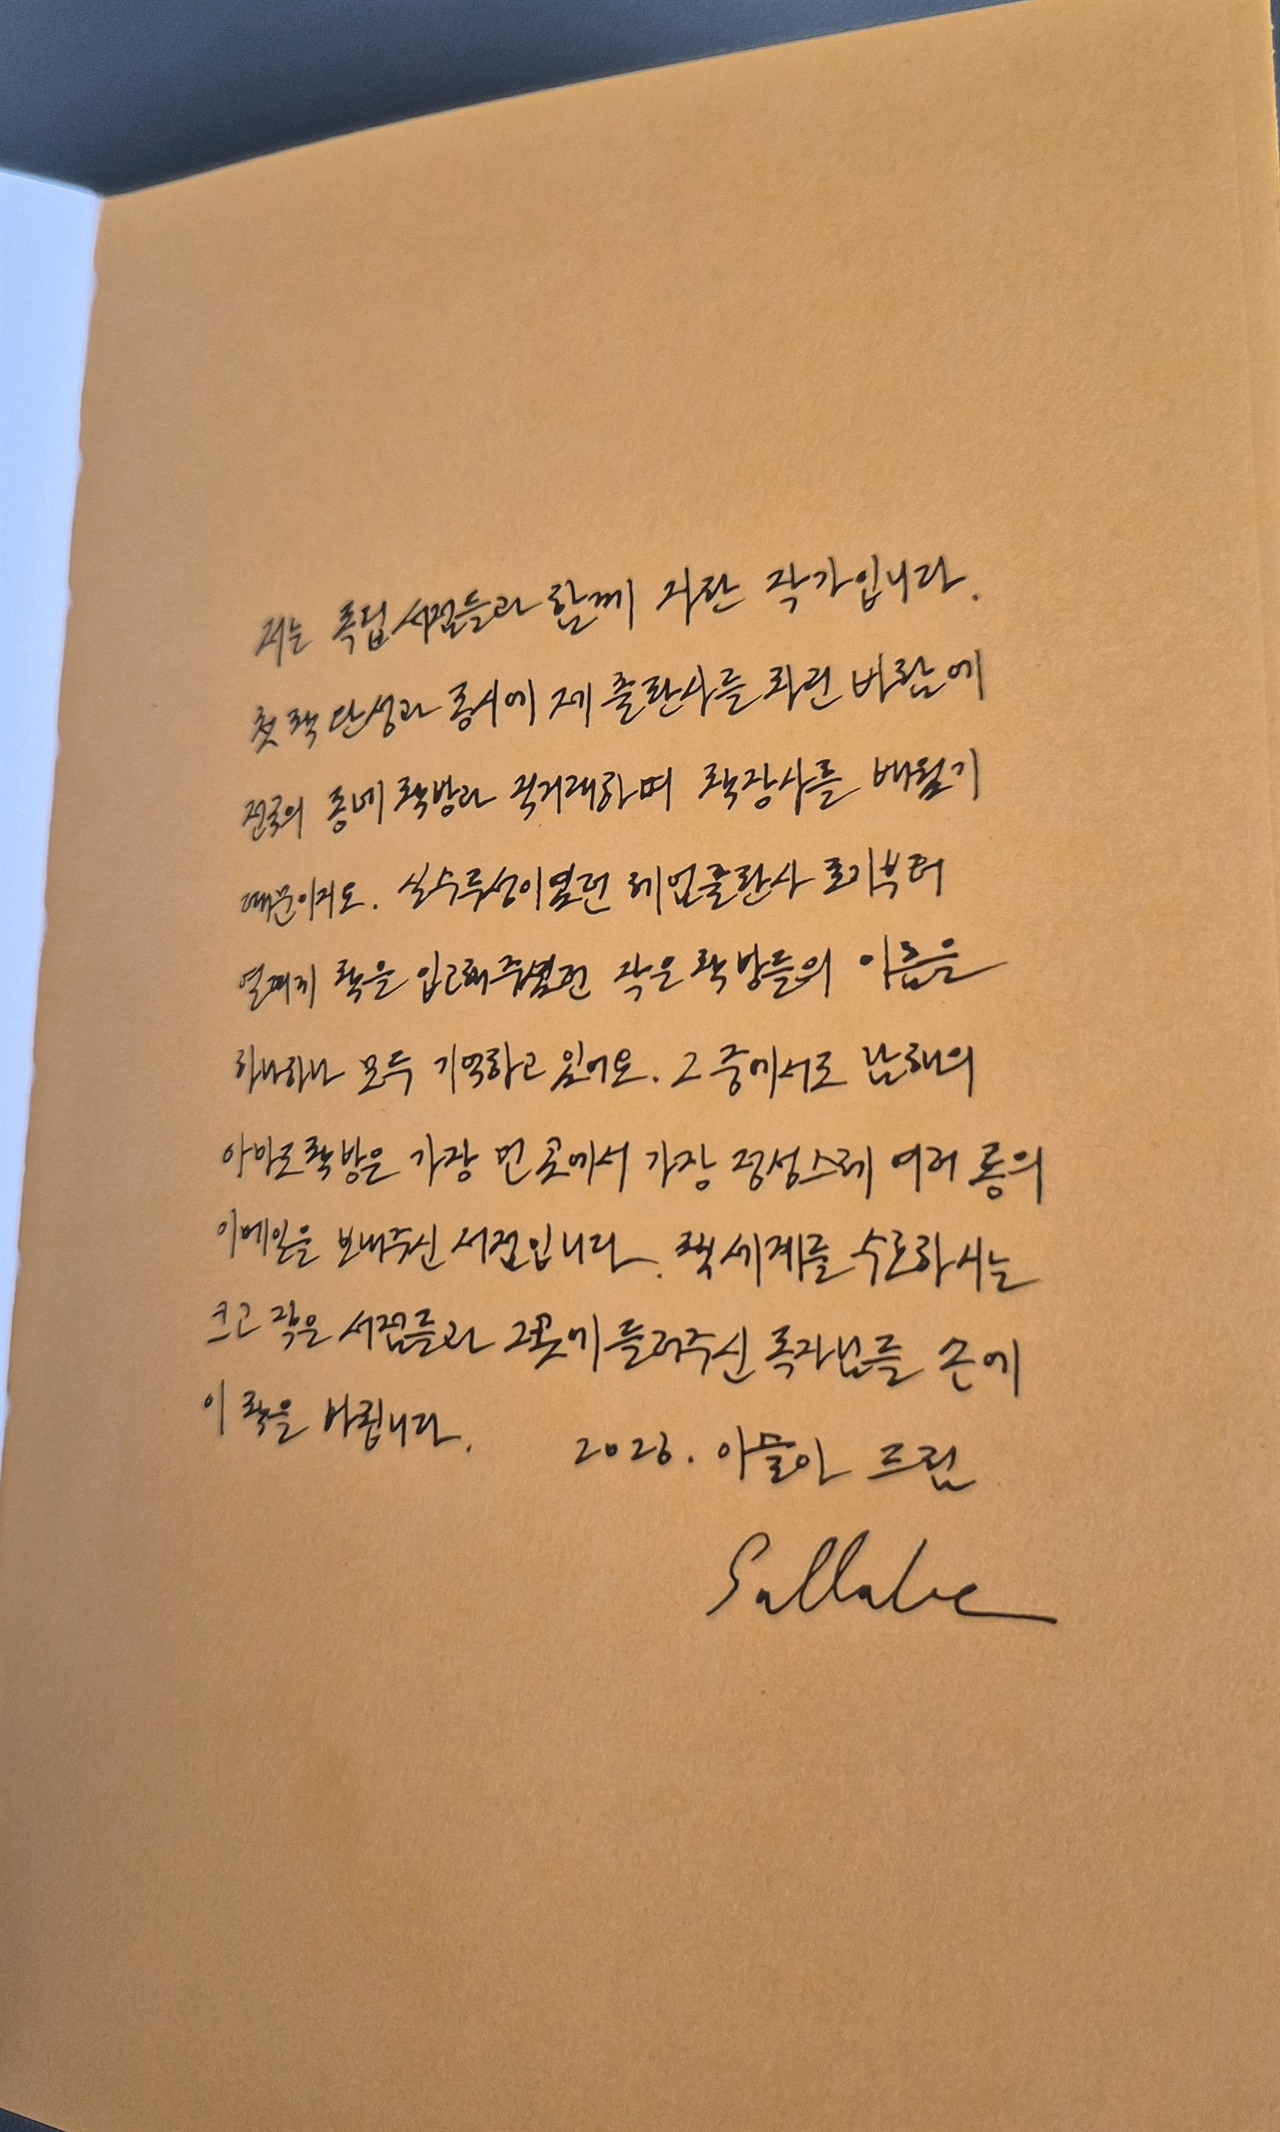 저는 독립서점들과 함께 자란 작가입니다.
첫 책 탄생과 동시에 제 출판사를 차린 바람에
전국의 동네책방과 직거래하며 책장사를 배웠기
때문이지요. 실수투성이였던 헤엄출판사 초기부터
여태 책을 입고해주셨던 작은 책방들의 이름을
하나하나 모두 기억하고 있어요. 그 중에서도 남해의
아마도책방은 가장 먼 곳에서 가장 정성스레 여러 통의
이메일을 보내주신 서점입니다. 책세계를 수호하시는
크고 작은 서점들과 그곳에 들러주신 독자님들 손에
이 책을 바칩니다.
2026. 이슬아 드림
Sullalee